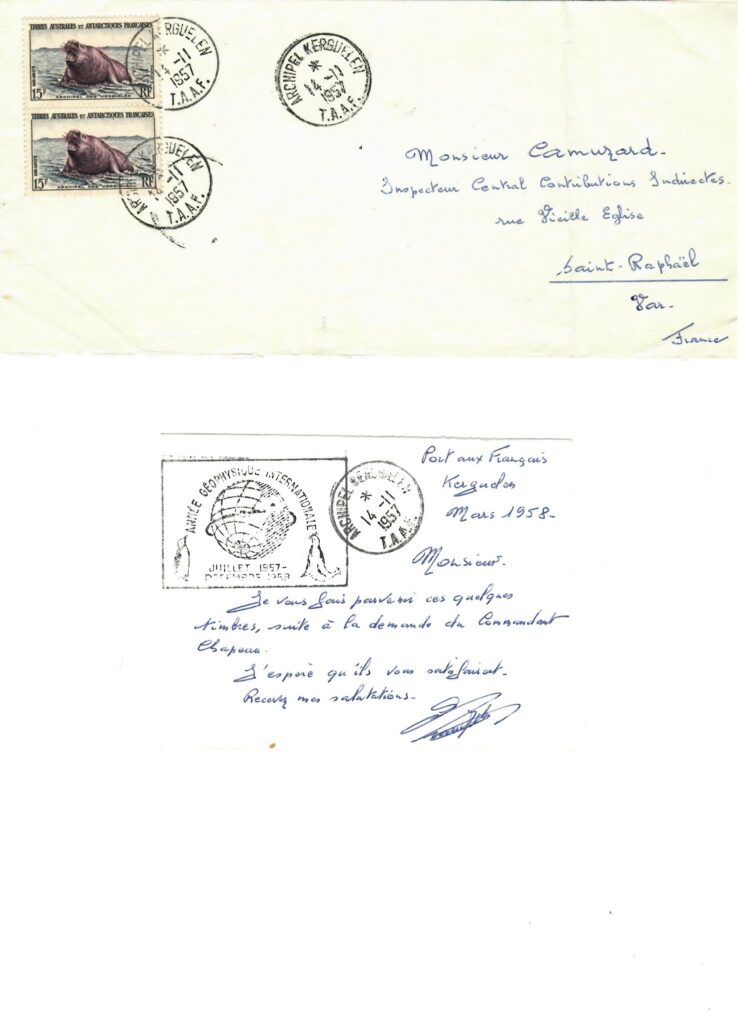 TERRES AUSTRALES ET ANTARCTIQUES FRANÇAISES
15F ARCHIPEL DES KERGUELEN RF
TERRES AUSTRALES ET ANTARCTIQUES FRANÇAISES
15F ARCHIPEL DES KERGUELEN RF
ARCHIPEL KERGUELEN
14 -11
1957
T.A.A.F.
ARCHIPEL KERGUELEN
14 -11
1957
T.A.A.F.
ARCHIPEL KERGUELEN
* 14 -11
1957
T.A.A.F.
Monsieur Camuzard.
Inspecteur Central Contributions Indirectes.
rue Vieille Eglise
Saint-Raphaël
Var.
France
ANNÉE GÉOPHYSIQUE INTERNATIONALE
JUILLET 1957-
DECEMBRE 1958
ARCHIPEL KERGUELEN
* 14 -11
1957
T.A.A.F.
Port aux Français
Kerguelen
Mars 1958-
Monsieur.
Je vous fais parvenir ces quelques
timbres, suite à la demande du Commandant
Chapeau.
J'espère qu'ils vous satisfairont.
Recevez mes salutations.